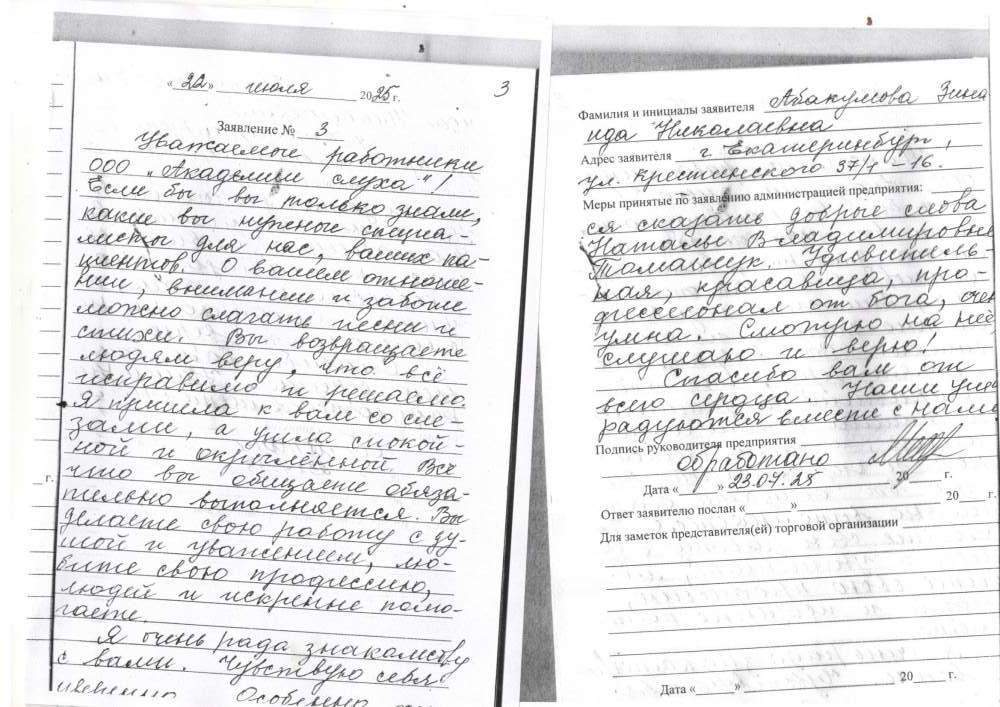 «22» июля 2025 г.
3
Заявление № 3
Уважаемые работники
ООО "Академии слуха"!
Если бы вы только знали,
какие вы нужные специа-
листы для нас, ваших па-
циентов. О вашем отноше-
нии, внимании и заботе
можно слагать песни и
стихи. Вы возвращаете
людям веру, что всё
исправимо и решаемо.
Я пришла к вам со сле-
зами, а ушла спокой-
ной и окрылённой. Всё
что вы обещаете обяза-
тельно выполняется. Вы
делаете свою работу с ду-
шой и уважением, лю-
бите свою профессию,
людей и искренне помо-
гаете.
Я очень рада знакомству
с вами. Чувствую себя
Особенно
г.
Фамилия и инициалы заявителя Абакумова Зина
ида Николаевна
Адрес заявителя г Екатеринбург,
ул. Крестинского 37/1 - 16.
Меры принятые по заявлению администрацией предприятия:
ся сказать добрые слова
Наталье Владимировне
Томащук. Удивитель-
ная, красавица, про-
фессионал от бога, очен
умна. Смотрю на неё,
слушаю и верю!
Спасибо вам от
всего сердца. Наши уши
радуются вместе с нами
Подпись руководителя предприятия
обработано
Дата «____» 23.07.25 20___ г.
Ответ заявителю послан «______» 20___ г.
Для заметок представителя(ей) торговой организации
Дата «______» 20___ г.